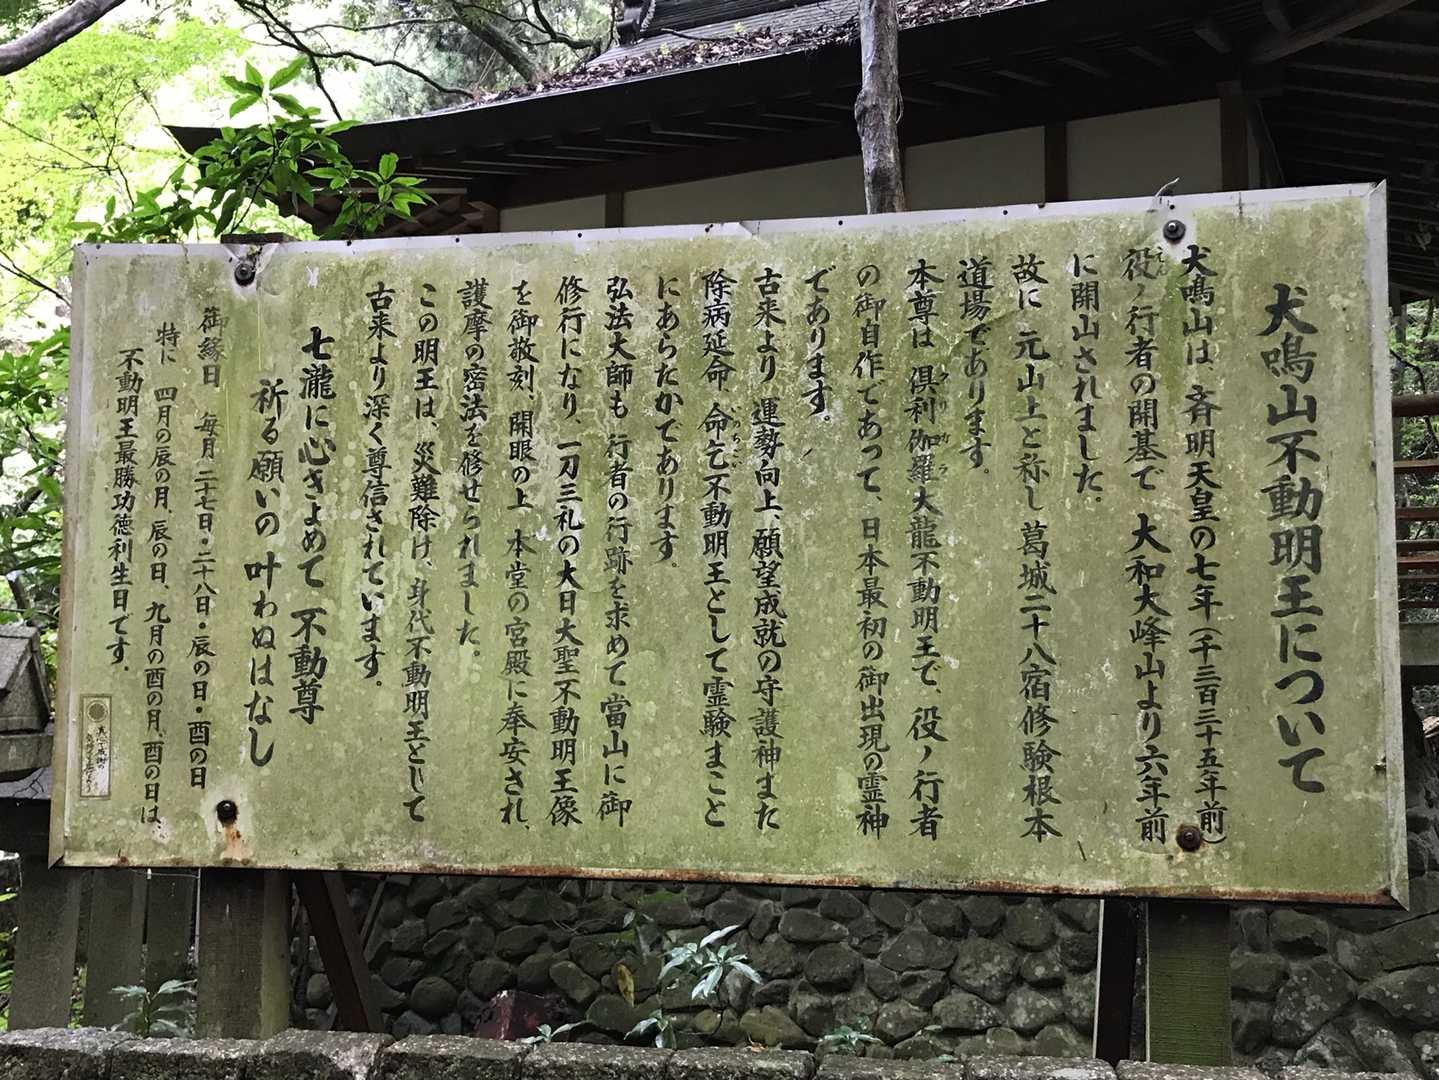 犬鳴山不動明王について
犬鳴山は、斉明天皇の七年（千三百三十五年前）
役ノ行者の開基で 大和大峰山より六年前
に開山されました。
故に 元山上と称し 葛城二十八宿修験根本
道場であります。
本尊は 倶利伽羅大龍不動明王で、役ノ行者
の御自作であって、日本最初の御出現の霊神
であります。
古来より 運勢向上 願望成就の守護神また
除病延命、命乞不動明王として霊験まこと
にあらたかであります。
弘法大師も 行者の行跡を求めて當山に御
修行になり、一刀三礼の大日大聖不動明王像
を御敬刻、開眼の上 本堂の宮殿に奉安され、
護摩の密法を修せられました。
この明王は、災難除け、身代不動明王として
古来より深く尊信されています。
七瀧に心きよめて 不動尊
祈る願いの 叶わぬはなし
御縁日 毎月 二十七日・二十八日・辰の日・酉の日
特に 四月の辰の月、辰の日、九月の酉の月、酉の日は、
不動明王最勝功徳利生日です。